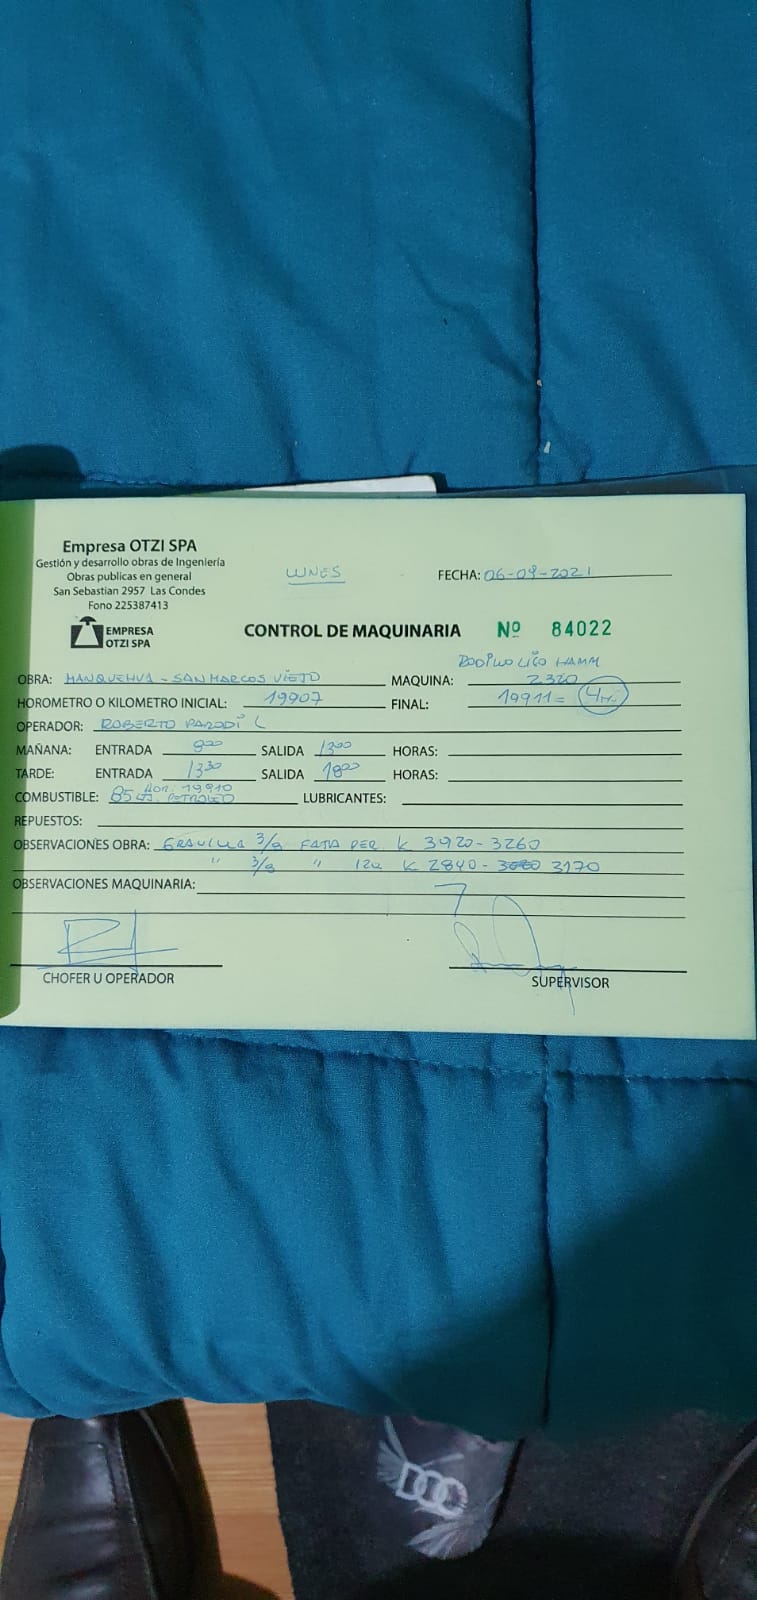 Empresa OTZI SPA
Gestión y desarrollo obras de Ingeniería
Obras publicas en general
San Sebastian 2957 Las Condes
Fono 225387413
EMPRESA
OTZI SPA
LUNES
FECHA: 06-09-2021
CONTROL DE MAQUINARIA Nº 84022
RODILLO LISO HAMM
OBRA: MANQUEHUA - SAN MARCOS VIEJO MAQUINA: 2320
HOROMETRO O KILOMETRO INICIAL: 19907 FINAL: 19911 = 4
OPERADOR: ROBERTO PARODI L
MAÑANA: ENTRADA 800 SALIDA 1300 HORAS:
TARDE: ENTRADA 1330 SALIDA 1800 HORAS:
HOR. 19910
COMBUSTIBLE: 85 LTS. PETROLEO LUBRICANTES:
REPUESTOS:
OBSERVACIONES OBRA: GRAVILLA 3/8 FAJA DER K 3920-3260
" 3/8 " IZQ K 2840- 3170
OBSERVACIONES MAQUINARIA:
CHOFER U OPERADOR
SUPERVISOR
DOC